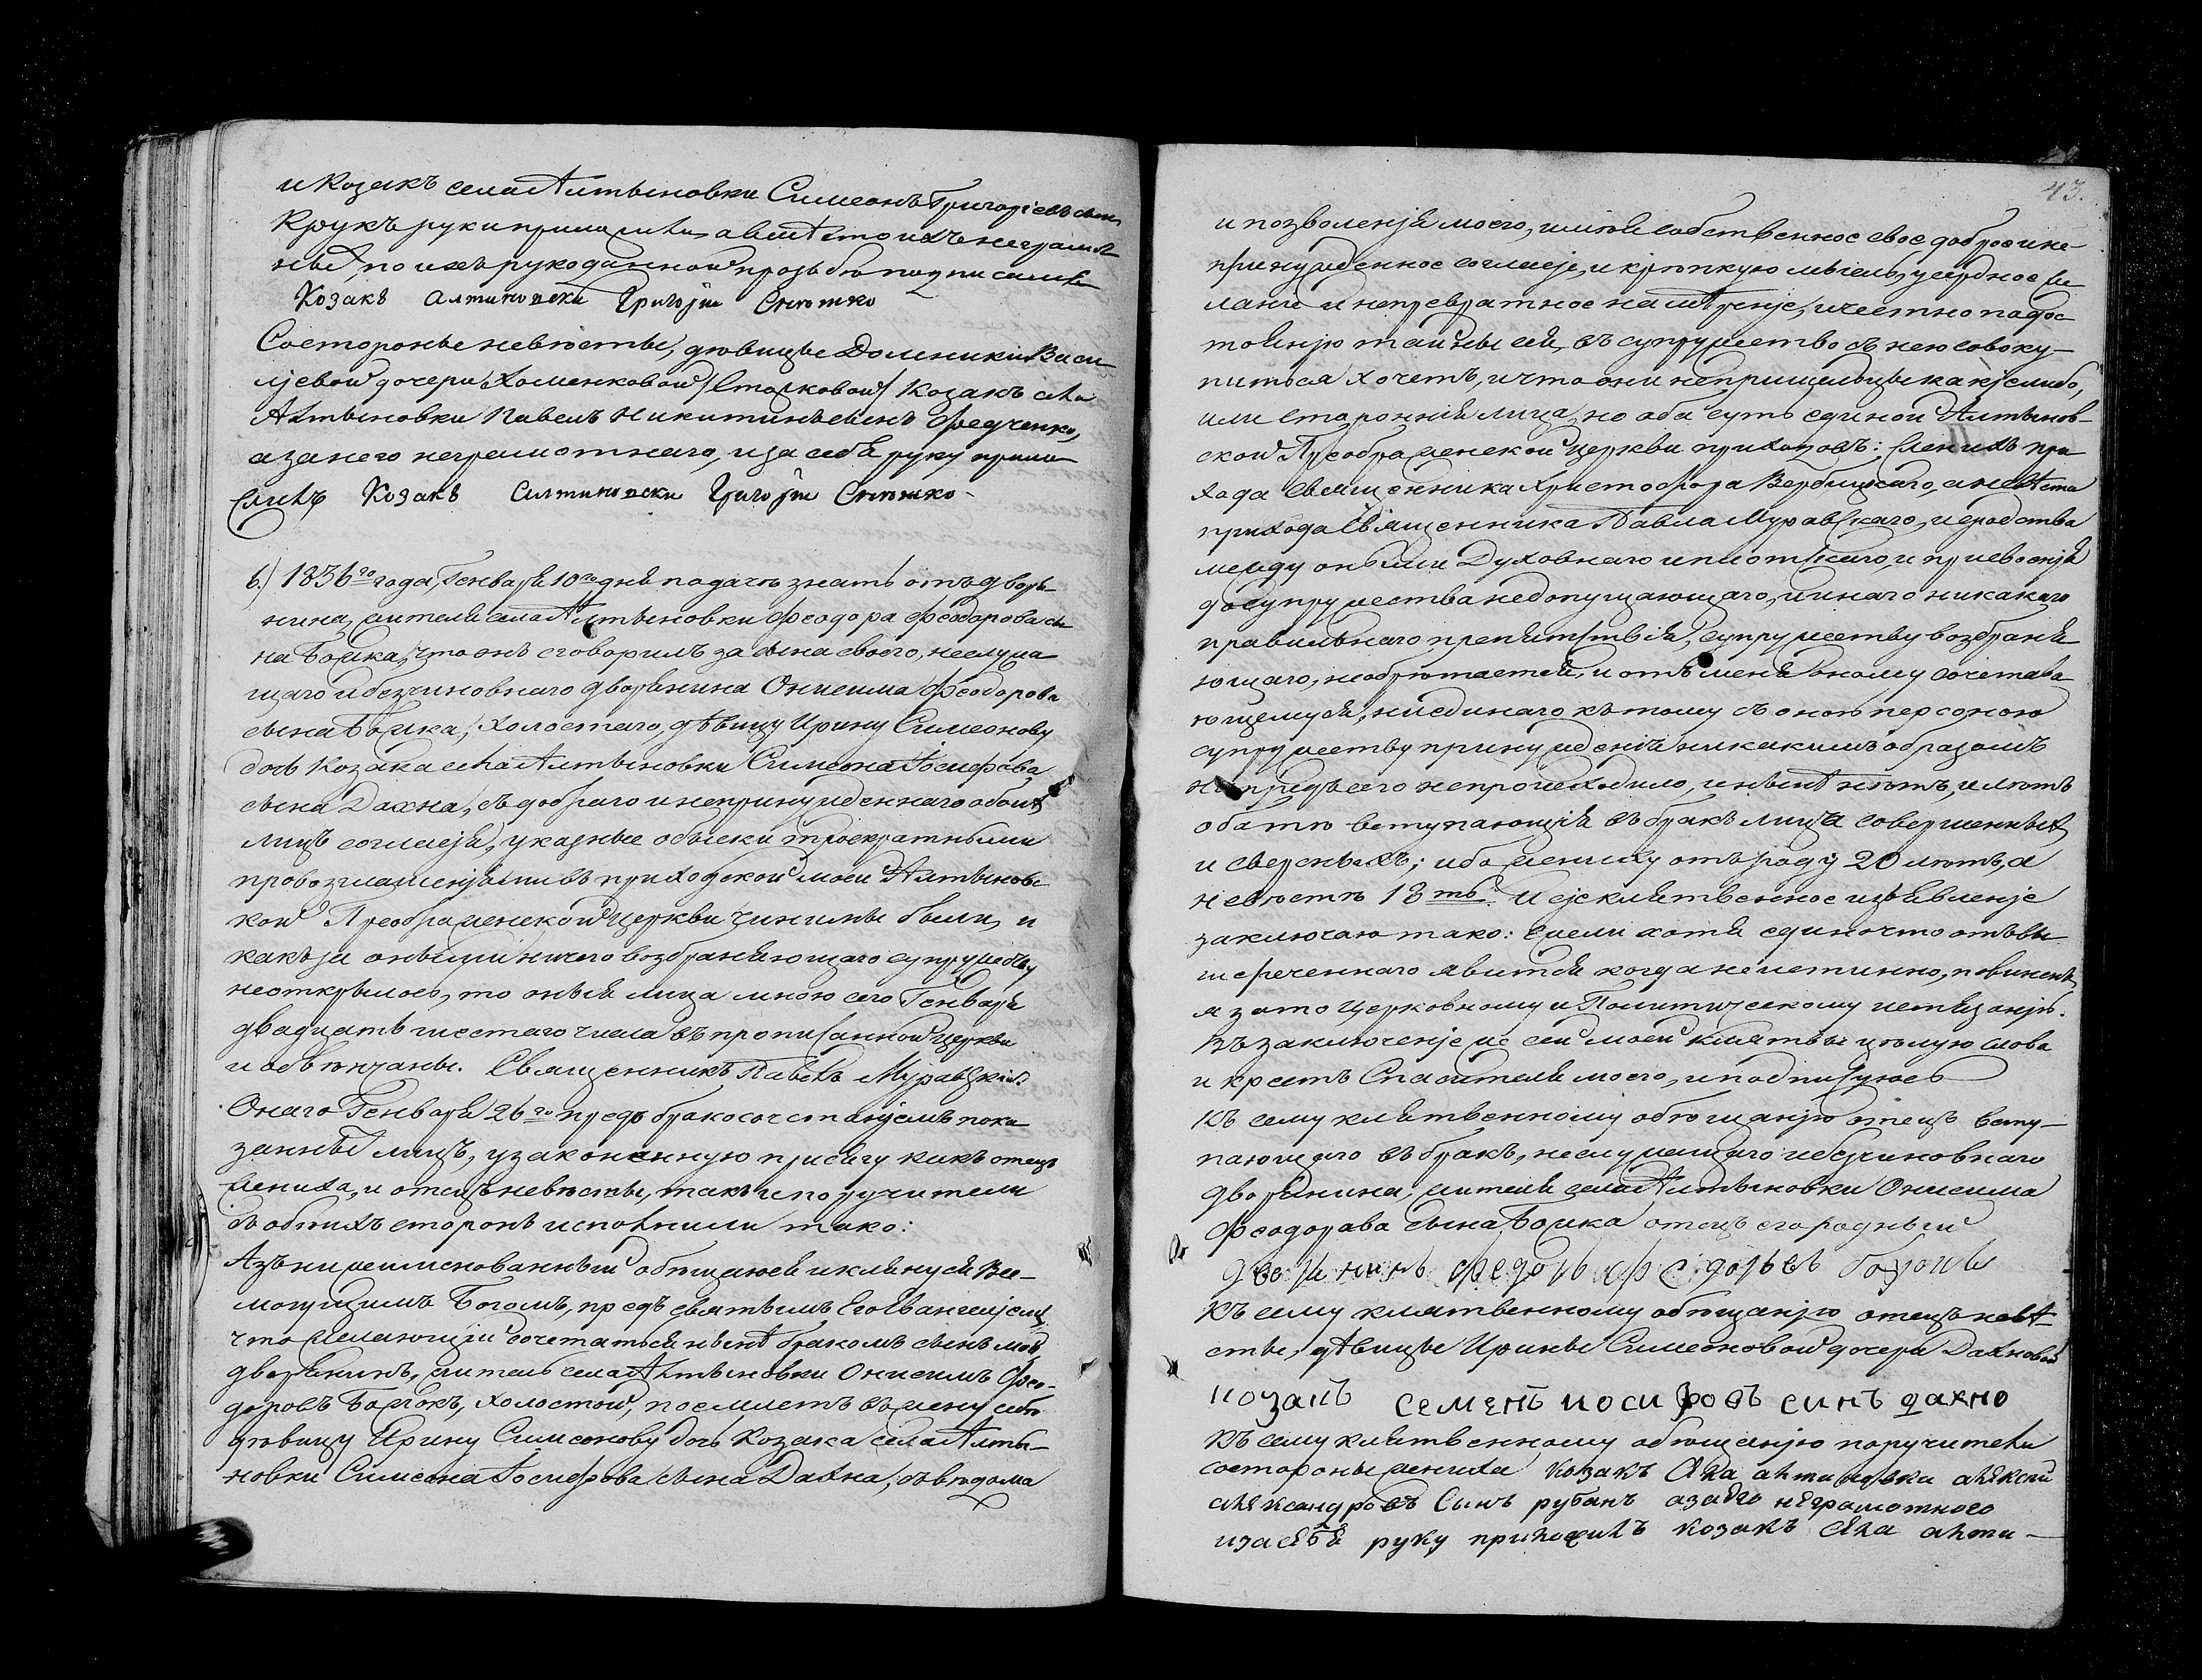 и Козакъ села Алтыновки Симеонъ Григоріевъ сынъ
Крукъ руки приложили, а вмѣсто ихъ неграмот-
ныхъ по ихъ рукоданной прозьбѣ подписался
Козакъ Алтиновски Григорій Снѣтко
Состороны невѣсты, дѣвицы Домникіи Васи
ліевой дочери Хоменковой /Столковой/ Козакъ села
Алтыновки Павелъ Никитинъ сынъ Федченко,
а за него неграмотнаго, и за себя руку прило
жилъ Козакъ Силтиновски Григорій Снѣтко
6.) 1836го года, Генваря 10го дня подачѣ знать отъ дворя-
нина, жителя села Алтыновки Феодора Феодорова сы
на Божка, что онъ сговорилъ за сына своего, неслужа
щаго и безчиновнаго дворянина Онисима Феодорова
сына Божка, холостаго, дѣвицу Ирину Симеонову
дочь Козака села Алтыновки Симеона Іосифова
сына Дахна, съ добраго и непринужденнаго обоихъ
лицъ согласія, указные обыски троекратными
провозглашеніями въ приходской моей Алтыновс
кой Преображенской церкви чинимы были, и
какъ за оными ничего возбраняющаго супружеству
неоткрылось, то оныя лица мною сего Генваря
двадцать шестаго числа въ прописанной церкви
и обвѣнчаны. Священникъ Павелъ Муравскій.
Онаго Генваря 26го предъ бракосочетаніемъ пока
занныхъ лицъ, узаконенную присягу какъ отецъ
жениха, и отецъ невѣсты, такъ и поручители
собоихъ сторонъ исполнили тако:
Азъ нижеименованный обѣщаюся и клянуся Все-
могущимъ Богомъ, предъ святымъ Его Евангеліемъ
что желающій сочетаться нынѣ бракомъ сынъ мой
дворянинъ, житель села Алтыновки Онисимъ Фео-
доровъ Божокъ, холостой, поемлетъ въ жену себѣ
дѣвицу Ирину Симеонову дочь Козака села Алты-
новки Симеона Іосифова сына Дахна, съ вѣдома
43.
и позволенія моего, имѣя собственное свое доброе и не-
принужденное согласіе, и крѣпкую мысль, усердное же
ланіе и непревратное намѣреніе, и честно по дос
тоянію тайны сея, въ супружество съ нею совоку-
питься хочетъ, и что они не пришельцы какіе либо,
или стороннія лица, но оба суть единой Алтынов-
ской Преображенской церкви приходовъ: женихъ при
хода Священника Христофора Вербицкаго, а невѣста
прихода Священника Павла Муравскаго, и сродства
между оными Духовнаго и плотскаго, и присвоенія
до супружества недопущающаго, и инаго никакаго
правильнаго препятствія, супружеству возбраня
ющаго, необрѣтается, и отъ меня оному сочетава
ющемуся, ни единаго къ тому съ оною персоною
супружеству принужденія никакимъ образомъ
ни предъ сего непроисходило, и нынѣ нѣтъ, и лѣтъ
оба тѣ вступающія въ бракъ лица совершенныхъ
и сверсныхъ; ибо жениху отъ роду 20 лѣтъ, а
невѣстѣ 18ть. И сіе клятвенное изъявленіе
заключаю тако: Ежели хотя едино что отъ вы
шереченнаго явится когда неистинно, повиненъ
я за то Церковному и Политическому истязанію.
Въ заключеніе же сей моей клятвы цѣлую слова
и крестъ Спасителя моего, и подписуюсь
Къ сему клятвенному обѣщанію отецъ всту-
пающаго въ бракъ, неслужащаго и безчиновнаго
дворянина, жителя села Алтыновки Онисима
Феодорова сына Божка отецъ его родный
дворининъ федоръ федоръевъ
Къ сему клятвенному обѣщанію отецъ невѣ
сты, дѣвицы Ирины Симеоновой дочери Дахновой
козакъ семенъ иосифовъ синъ дахно
Къ сему клятвенному обѣщанію поручители
состороны жениха Козакъ Села алтиновки алѣксѣй
алѣксандровъ Сынъ рубанъ азаѣго неграмотного
изасебѣ руку приложилъ козакъ села алти-